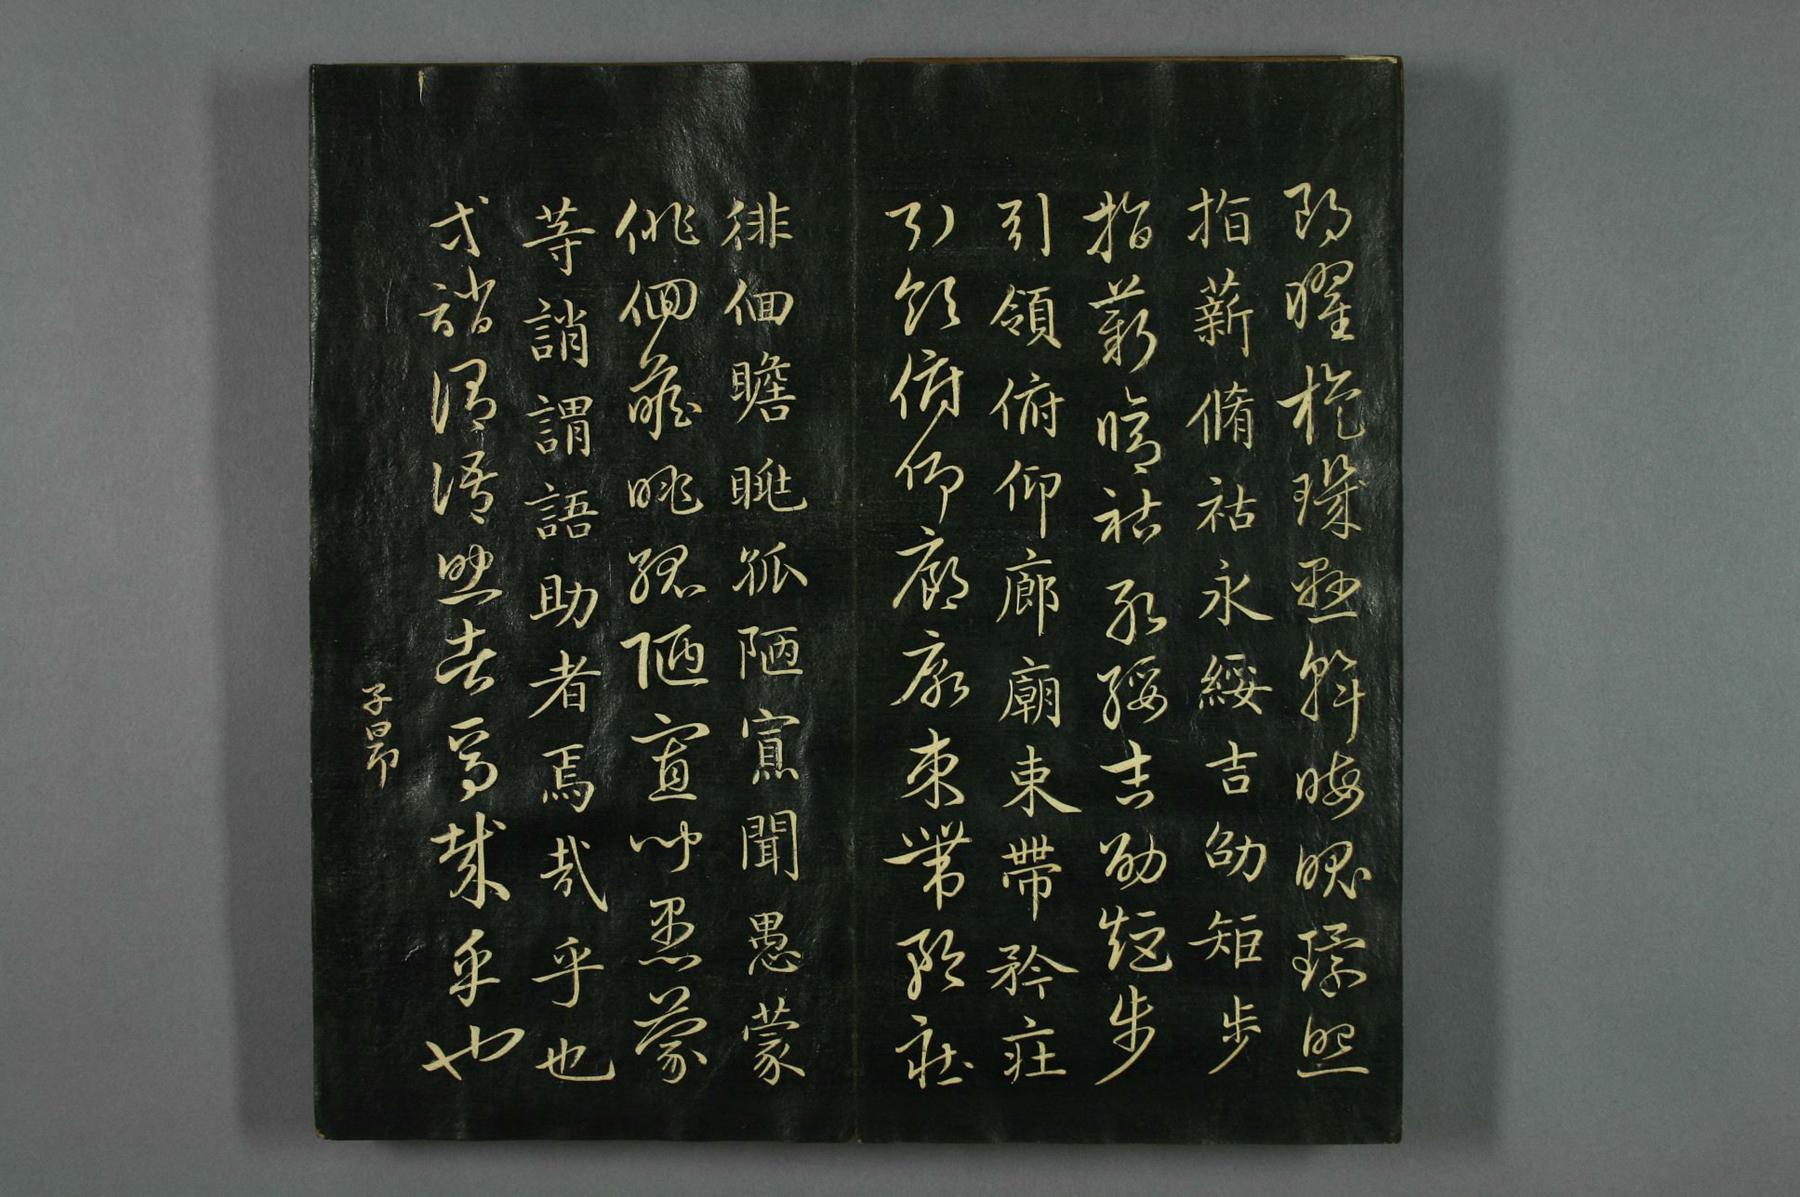 朗曜旋璣懸斡晦魄環照
指薪脩祜永綏吉劭矩步
指薪脩祜永綏吉劭矩步
引領俯仰廊廟束帶矜莊
引領俯仰廊廟束帶矜莊
徘徊瞻眺孤陋寡聞愚蒙
徘徊瞻眺孤陋寡聞愚蒙
等誚謂語助者焉哉乎也
等誚謂語助者焉哉乎也
子昂